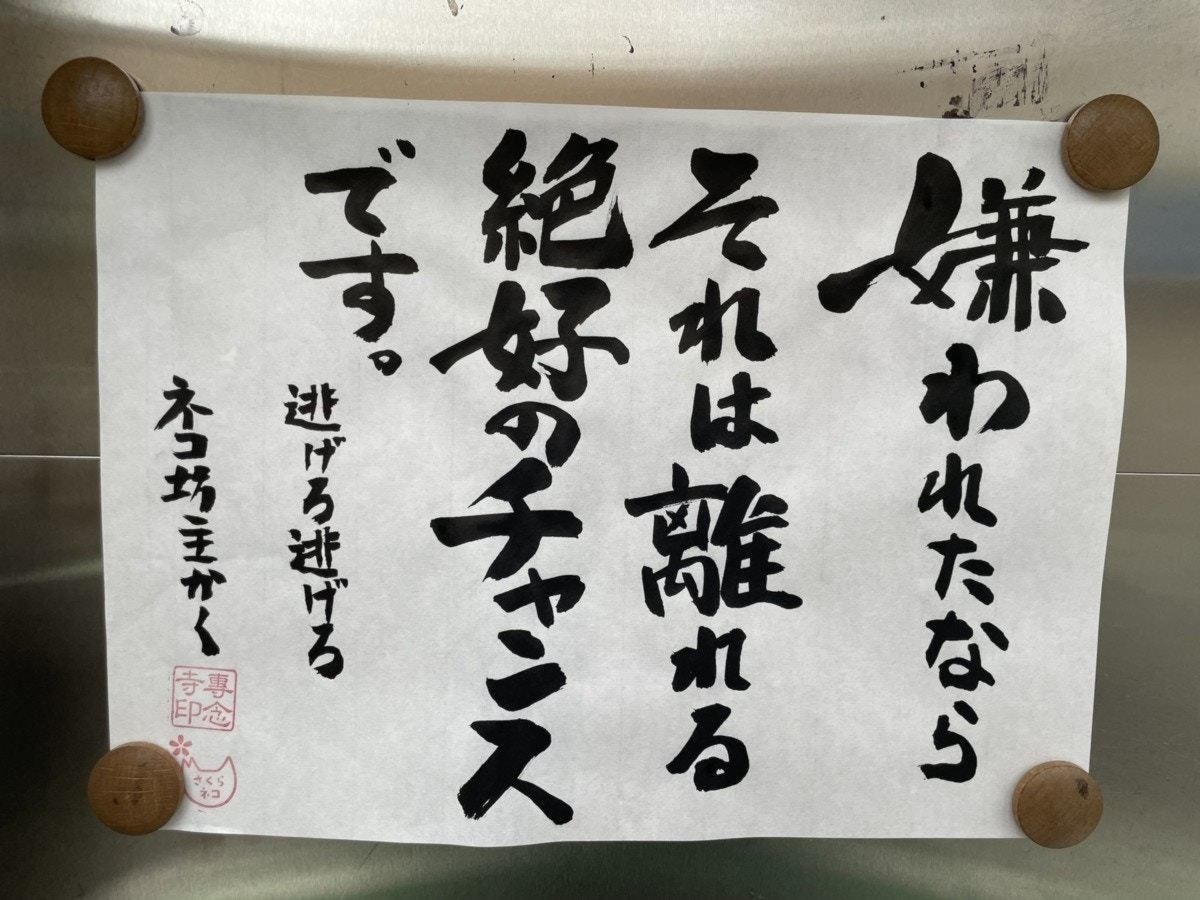 嫌われたなら
それは離れる
絶好のチャンス
です。
逃げろ逃げろ
ネコ坊主かく
專念
寺印
さくら
ネコ